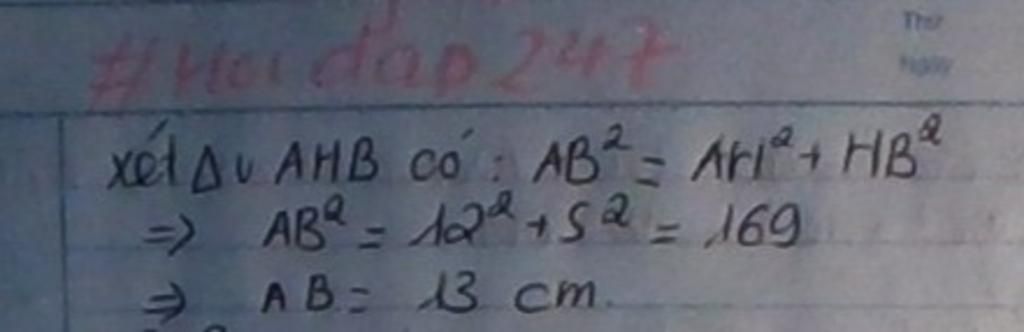 #Hoidap247
Thứ
Ngày
xét Δv AHB có: AB² = AH² + HB²
=> AB² = 12² + 5² = 169
=> AB = 13 cm.